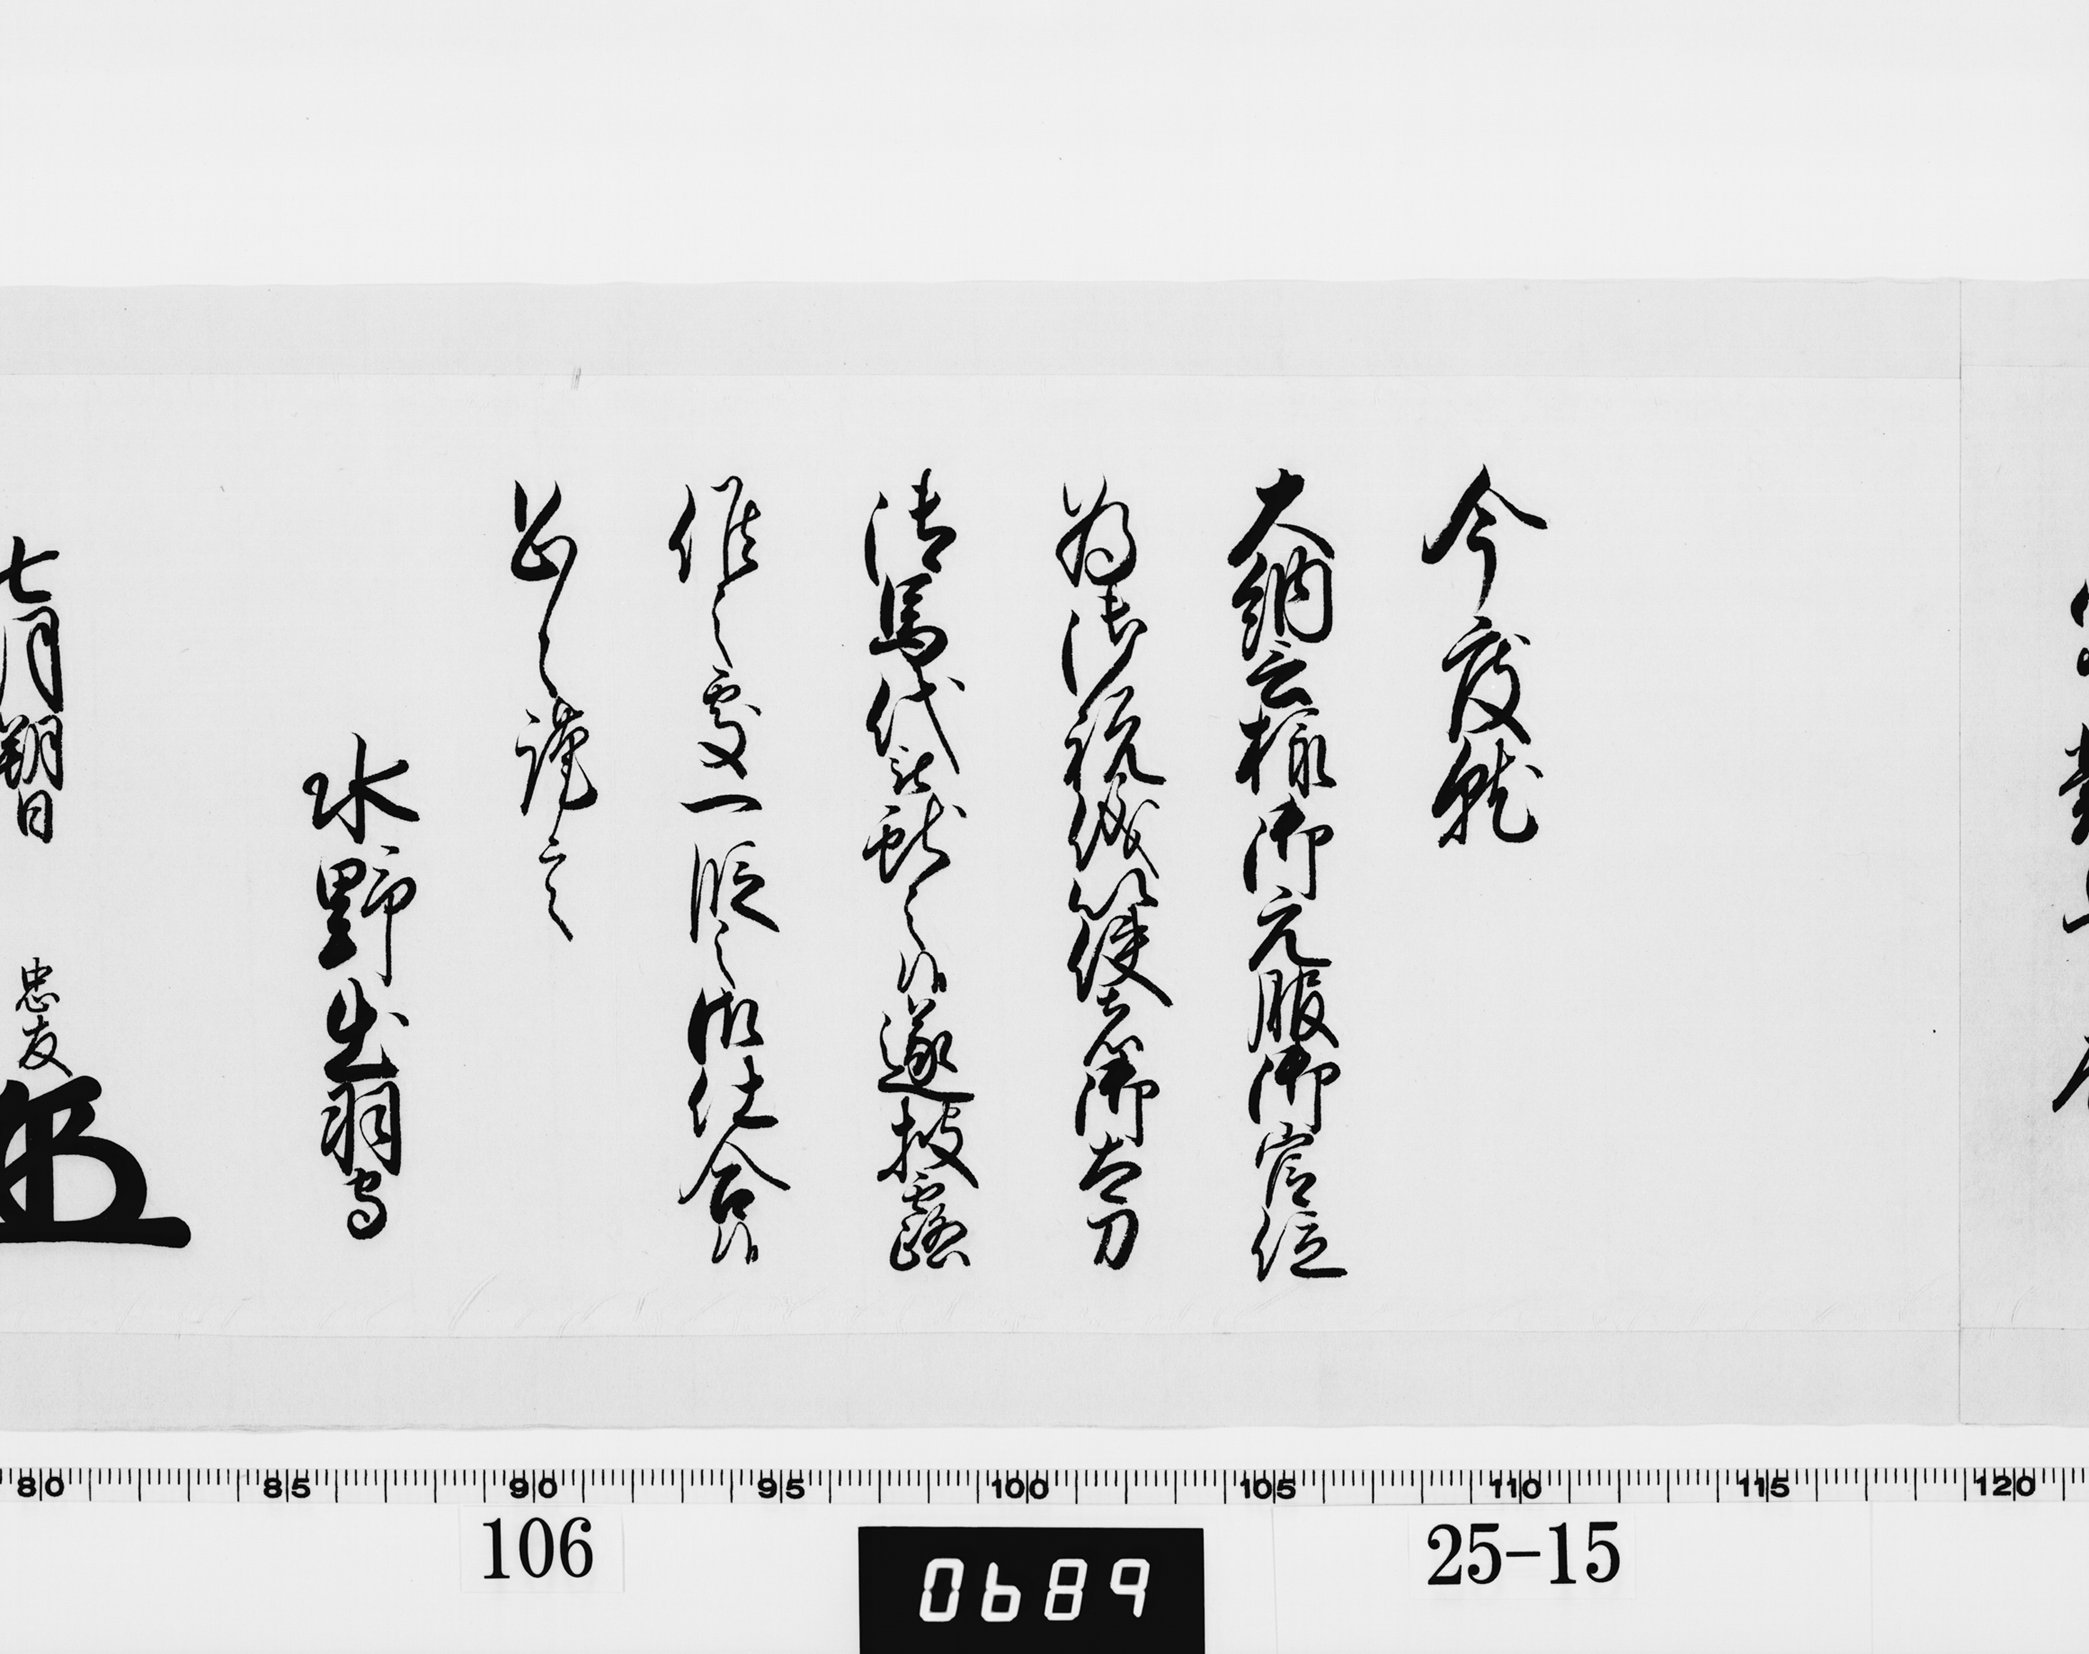 今度就
大納言様御元服御官位
為御祝儀以使者御太刀
御馬代被献之候遂披露
候之處一段之御仕合候
恐々謹言
水野出羽守
七月朔日
忠友
80 85 90 95 100 105 110 115 120
106
0689
25-15